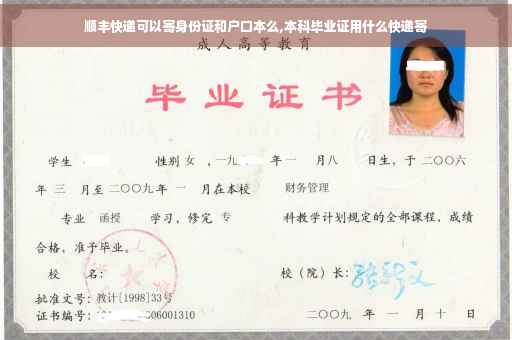 顺丰快递可以寄身份证和户口本么,本科毕业证用什么快递寄
成人高等教育
毕业证书
学生 性别 女 ,一九 年 一 月八 日生，于 二〇〇六
年 三 月至 二〇〇九 年 一 月在本校 财务管理
专业 函授 学习，修完 专 科教学计划规定的全部课程，成绩
合格，准予毕业。
校 名： 校（院）长：
批准文号：教计[1998]33号
证书编号： 06001310 二〇〇九 年 一 月 十 日